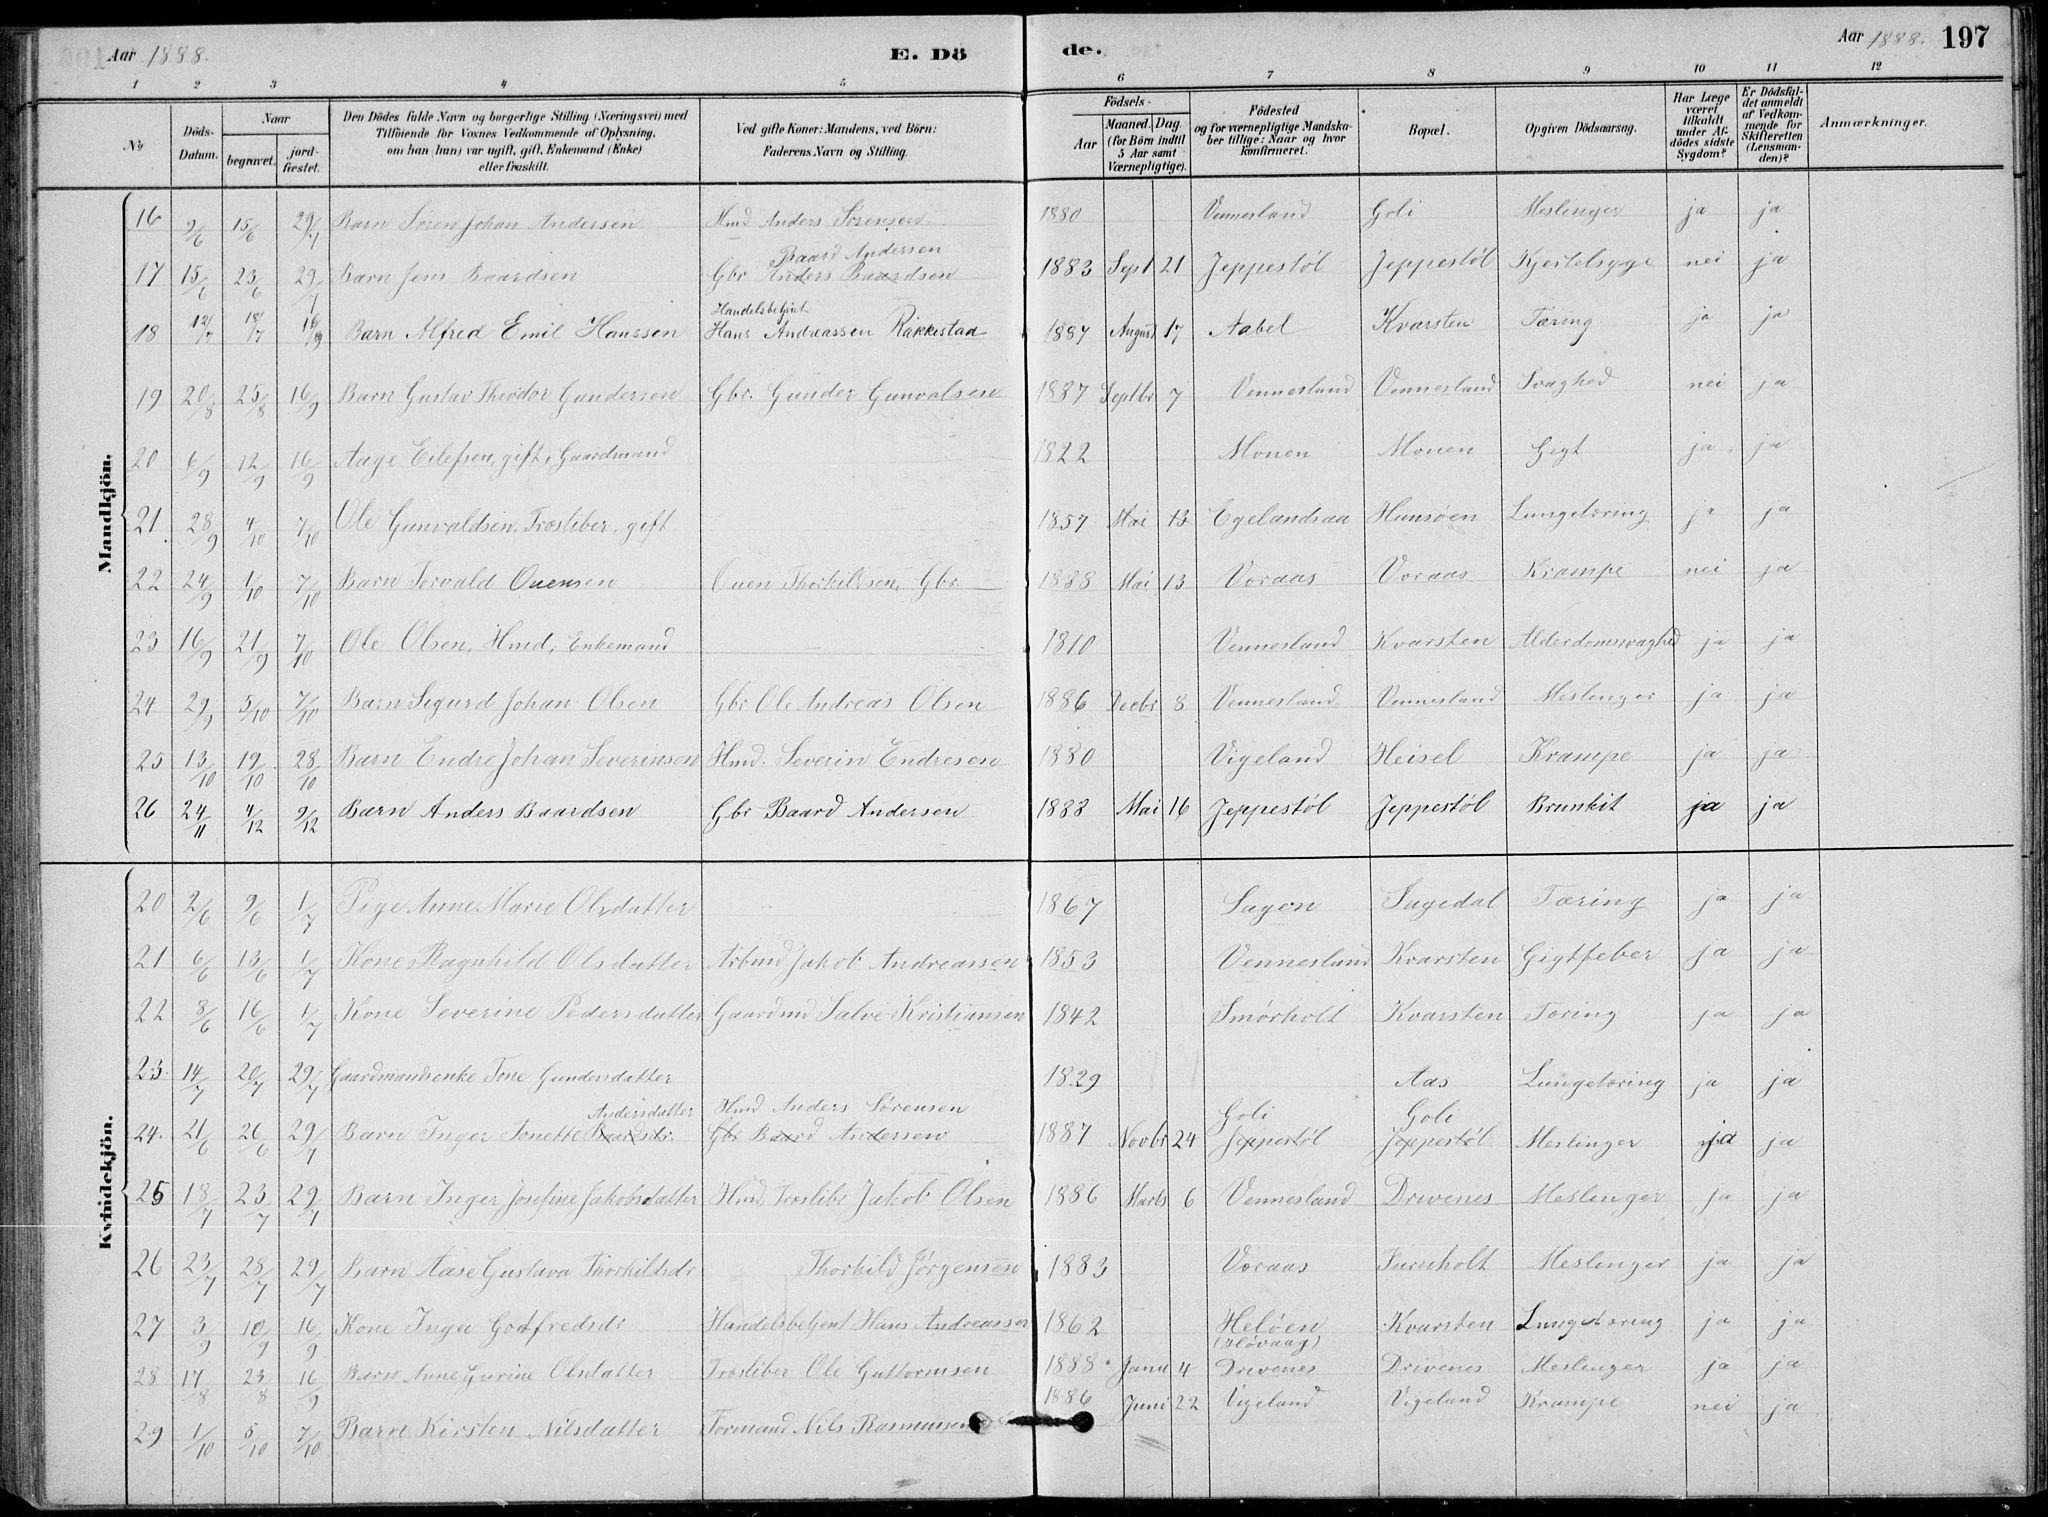 Aar 1888.
E. Dö
de.
Aar 1888. 197
1 2 3 4 5 6 7 8 9 10 11 12
No
Döds-Datum.
Naar
begravet.
jord-fæstet.
Den Dödes fulde Navn og borgerlige Stilling (Næringsvei) med
Tilföiende for Voxnes Vedkommende af Oplysning,
om han (hun) var ugift, gift, Enkemand (Enke)
eller fraskilt.
Ved gifte Koner: Mandens, ved Börn:
Faderens Navn og Stilling.
Födsels-
Aar
Maaned. Dag.
(for Börn indtil
5 Aar samt
Værnepligtige).
Födested
og for værnepligtige Mandska-
ber tillige: Naar og hvor
konfirmeret.
Bopæl.
Opgiven Dödsaarsag.
Har Læge
været
tilkaldt
under Af-
dödes sidste
Sygdom?
Er Dödsfal-
det anmeldt
af Vedkom-
mende for
Skifteretten
(Lensman-
den)?
Anmærkninger.
Mandkjön.
16 9/6 15/6 29/7 Barn Søren Johan Andersen Hmd Anders Sørensen 1880 Vennesland Goli Meslinger ja ja
Baard Andersen
17 15/6 23/6 29/7 Barn Jens Baardsen Gbr Anders Baardsen 1883 Sept 21 Jeppestøl Jeppestøl Kjertelsyge nei ja
Handelsbetjent
18 12/7 18/7 16/9 Barn Alfred Emil Hanssen Hans Andreassen Rakkestad 1887 August 17 Aabel Kvarsten Tæring ja ja
19 20/8 25/8 16/9 Barn Gustav Theodor Gundersen Gbr. Gunder Gunvalsen 1887 Septbr 7 Vennesland Vennesland Svaghed nei ja
20 6/9 12/9 16/9 Aage Eilefsen, gift, Gaardmand 1822 Monen Monen Gigt ja ja
21. 28/9 4/10 7/10 Ole Gunvaldsen, Træsliber, gift 1857 Mai 13 Egelandsaa Hunsøen Lungetæring ja ja
22 24/9 1/10 7/10 Barn Torvald Ouensen Ouen Thorkildsen, Gbr 1888 Mai 13 Voraas Voraas Krampe nei ja
23 16/9 21/9 7/10 Ole Olsen, Hmd, Enkemand 1810 Vennesland Kvarsten Alderdomsvaghed ja ja
24 29/9 5/10 7/10 Barn Sigurd Johan Olsen Gbr Ole Andreas Olsen 1886 Decbr 8 Vennesland Vennesland Meslinger ja ja
25 13/10 19/10 28/10 Barn Endre Johan Severinsen Hmd. Severin Endresen 1880 Vigeland Heisel Krampe ja ja
26 24/11 4/12 9/12 Barn Anders Baardsen Gbr Baard Andersen 1888 Mai 16 Jeppestøl Jeppestøl Brunkit ja ja
Kvindekjön.
20 2/6 9/6 1/7 Pige Anne Marie Olsdatter 1867 Sagen Sagedal Tæring ja ja
21 6/6 13/6 1/7 Kone Ragnhild Olsdatter Arbmd Jakob Andreassen 1853 Vennesland Kvarsten Gigtfeber ja ja
22 8/6 16/6 1/7 Kone Severine Pedersdatter Gaardmd Salve Kristiansen 1842 Smørholt Kvarsten Tæring ja ja
23. 14/7 20/7 29/7 Gaardmandsenke Tone Gundersdatter 1829 Aas Lungetæring ja ja
Andersdatter Hmd Anders Sørensen Goli Goli
24. 21/6 26/6 29/7 Barn Inger Tonette Baardsdr. Gbr Baard Andersen 1887 Novbr 24 Jeppestøl Jeppestøl Meslinger ja ja
25 18/7 23/7 29/7 Barn Inger Josefine Jakobsdatter Hmd, Træslibr Jakob Olsen 1886 Marts 6 Vennesland Drivenes Meslinger ja ja
26 23/7 28/7 29/7 Barn Aase Gustava Thorkildsdr Thorkild Jørgensen 1883 Voraas Furuholt Meslinger ja ja
27 3/9 10/9 16/9 Kone Inga Gotfredsdr Handelsbetjent Hans Andreassen 1862 Heløen Kvarsten Lungetæring ja ja
(Høvaag)
28 17/8 23/8 16/9 Barn Anne Gurine Olsdatter Træsliber Ole Guttormsen 1888 Janu 4 Drivenes Drivenes Meslinger ja ja
29 1/10 5/10 7/10 Barn Kirsten Nilsdatter Formand Nils Rasmussen 1886 Juni 22 Vigeland Vigeland Krampe nei ja